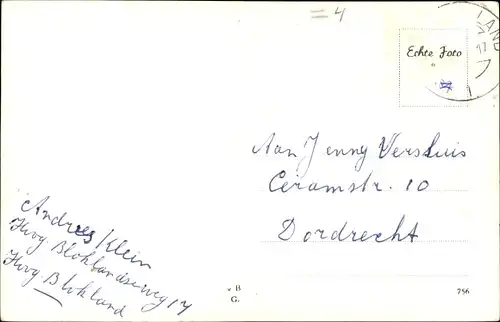 = 4
LAND
17
Echte Foto
Aan Jenny Versluis
Ceramstr. 10
Dordrecht
Andries Klein
Hoog Bloklandseweg 14
Hoog Blokland
v B
G.
756